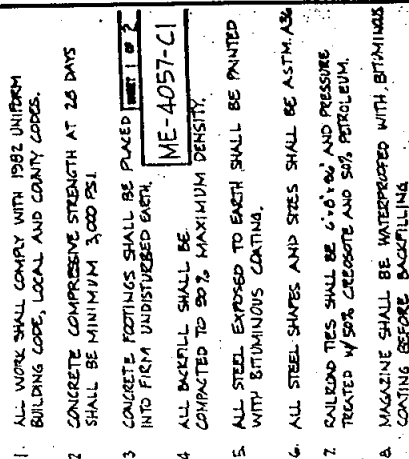 1. ALL WORK SHALL COMPLY WITH 1982 UNIFORM
BUILDING CODE, LOCAL AND COUNTY CODES.
2 CONCRETE COMPRESSIVE STRENGTH AT 28 DAYS
SHALL BE MINIMUM 3,000 PSI.
3 CONCRETE FOOTINGS SHALL BE PLACED
INTO FIRM UNDISTURBED EARTH.
SHEET 1 OF 2
ME-4057-C1
4 ALL BACKFILL SHALL BE
COMPACTED TO 90% MAXIMUM DENSITY.
5. ALL STEEL EXPOSED TO EARTH SHALL BE PAINTED
WITH BITUMINOUS COATING.
6. ALL STEEL SHAPES AND SIZES SHALL BE ASTM. A36
7. RAILROAD TIES SHALL BE AND PRESSURE
TREATED W/50% CREOSOTE AND 50% PETROLEUM.
8 MAGAZINE SHALL BE WATERPROOFED WITH BITUMINOUS
COATING BEFORE BACKFILLING.